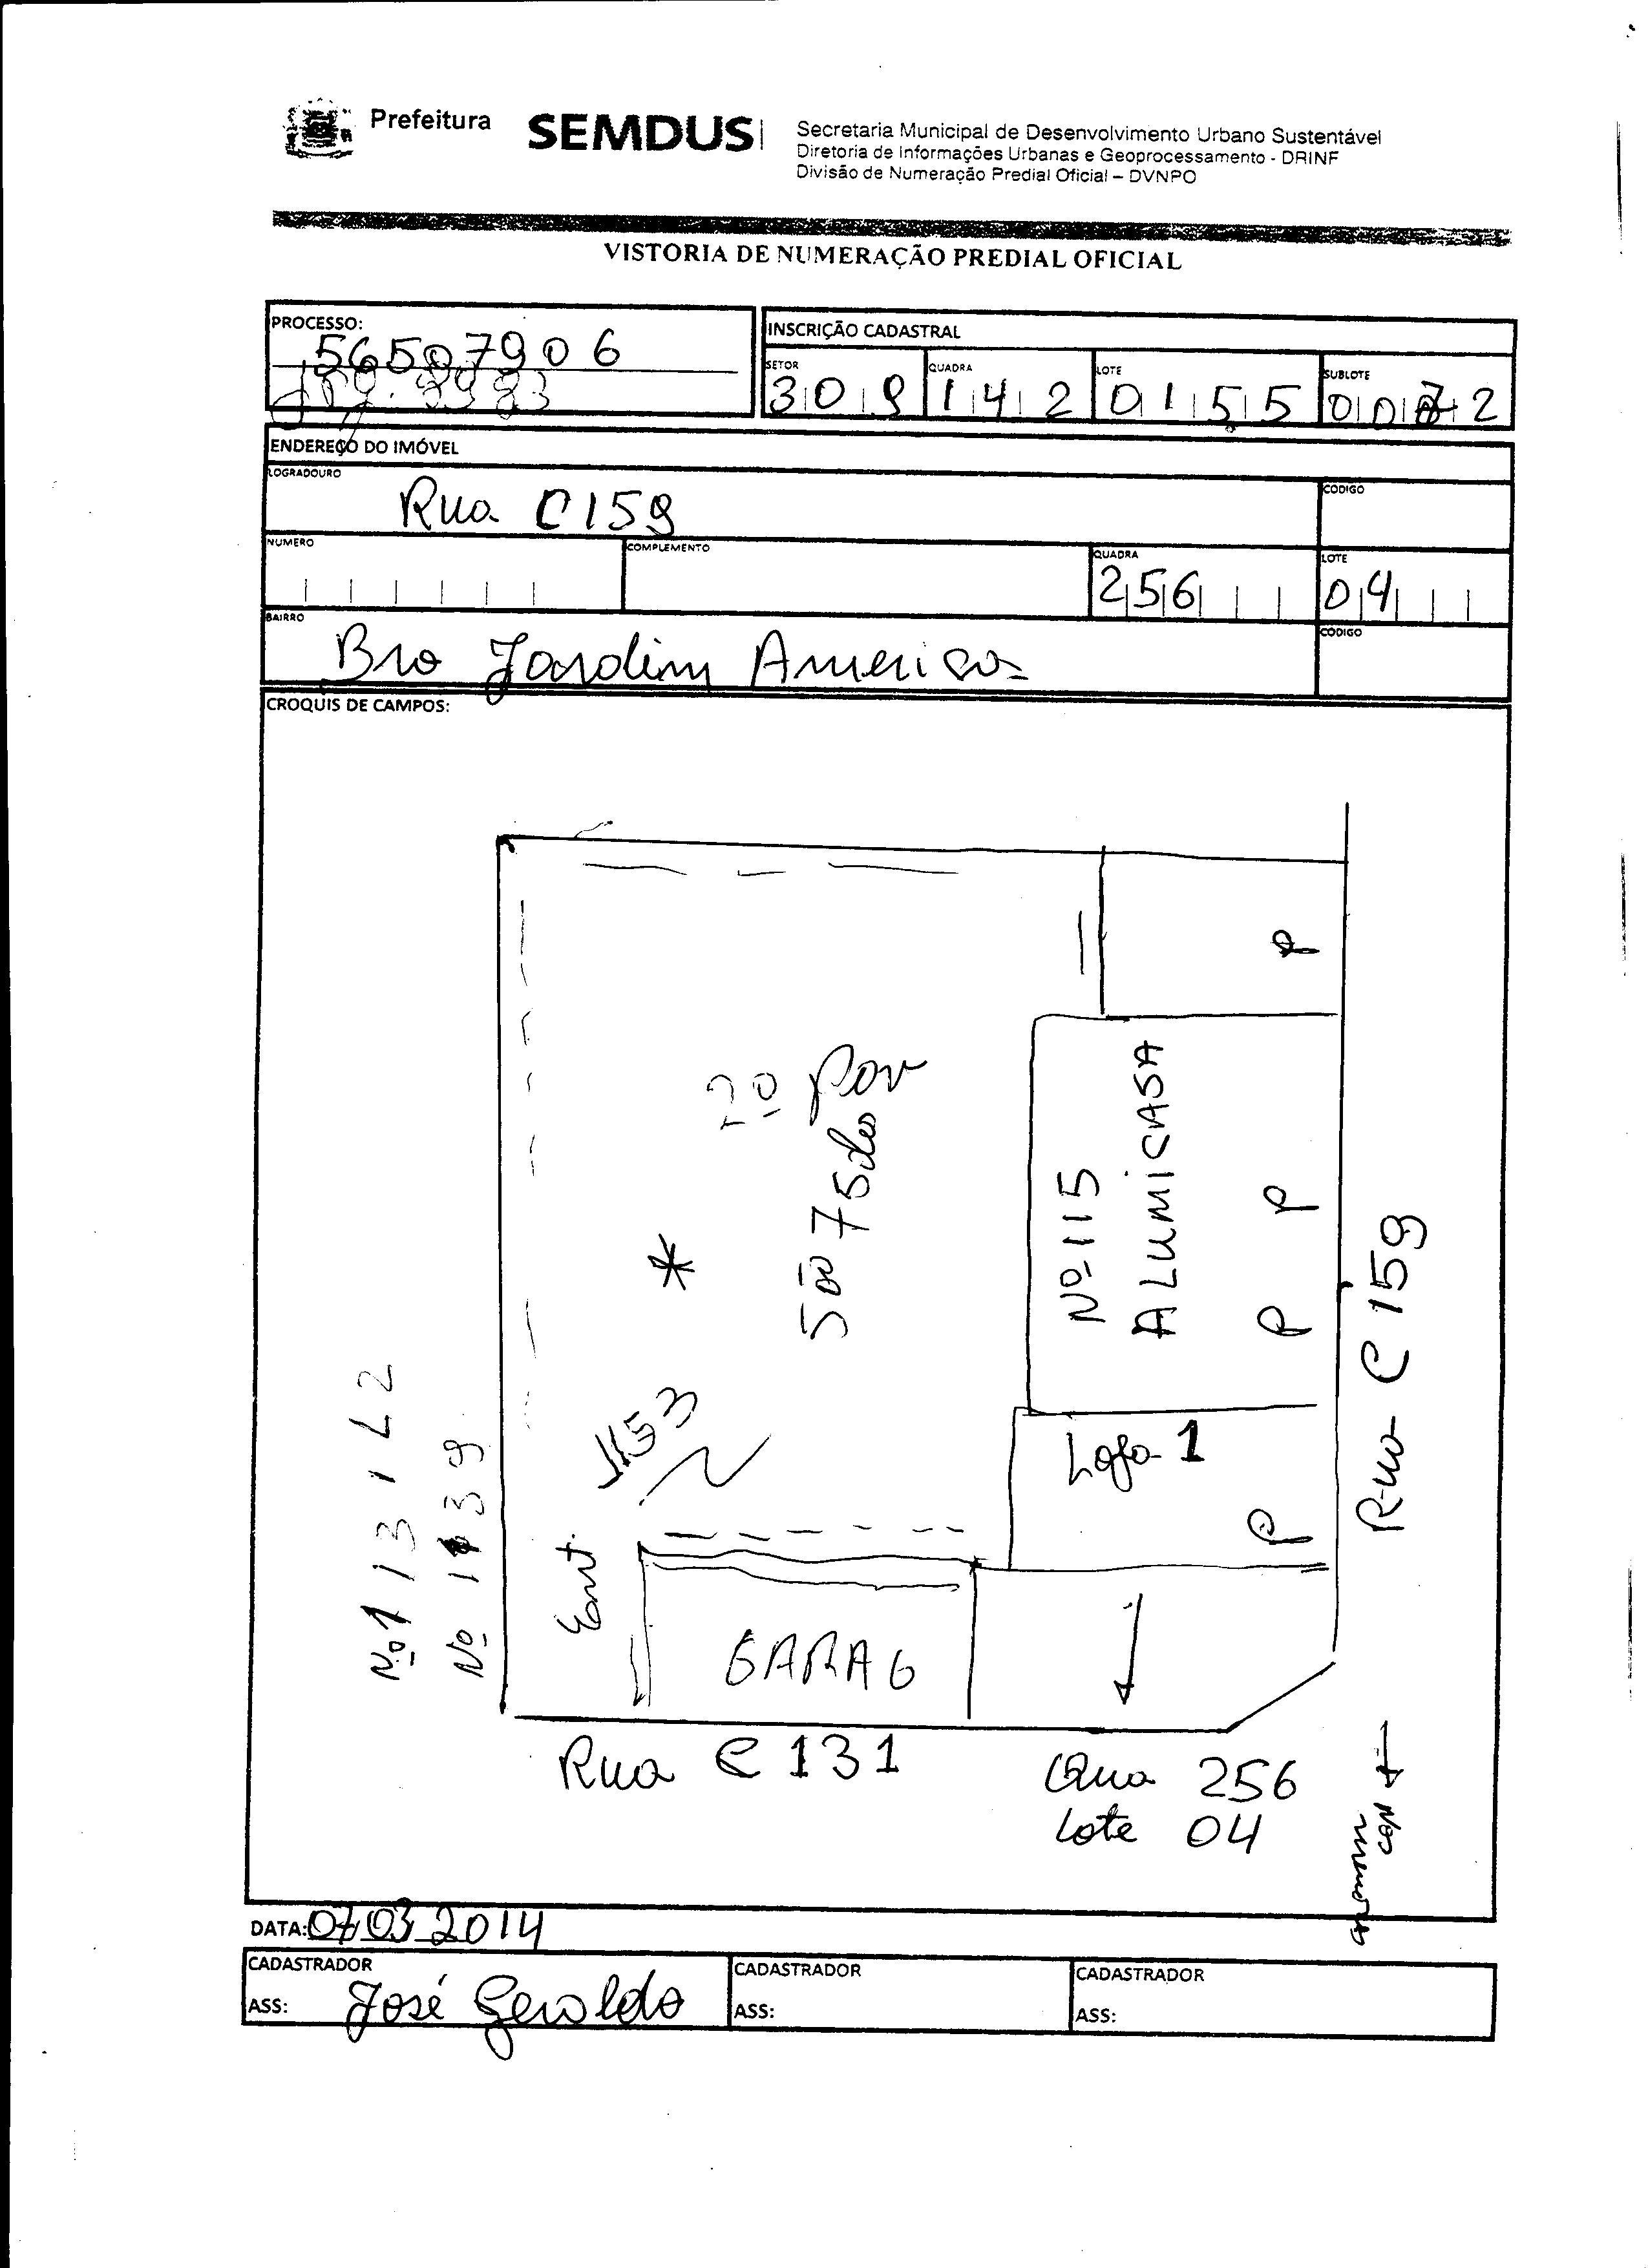 Prefeitura
SEMDUS
Secretaria Municipal de Desenvolvimento Urbano Sustentável
Diretoria de Informações Urbanas e Geoprocessamento - DRINF
Divisão de Numeração Predial Oficial – DVNPO
VISTORIA DE NUMERAÇÃO PREDIAL OFICIAL
PROCESSO:
56507906
INSCRIÇÃO CADASTRAL
SETOR
309
QUADRA
142
LOTE
0155
SUBLOTE
ENDEREÇO DO IMÓVEL
LOGRADOURO
Rua C159
CODIGO
NUMERO
COMPLEMENTO
QUADRA
256
LOTE
04
BAIRRO
Bro Jardim America
CODIGO
CROQUIS DE CAMPOS:
P
2º Pav
são 7 Sales
Nº 115
ALUMICASA
P P
Rua C 159
1153
Loja 1
P
Nº 1139
Ent.
GARAG
Rua C 131
Qua 256
Lote 04
DATA: 07 03 2014
CADASTRADOR
ASS: José Geraldo
CADASTRADOR
ASS:
CADASTRADOR
ASS: